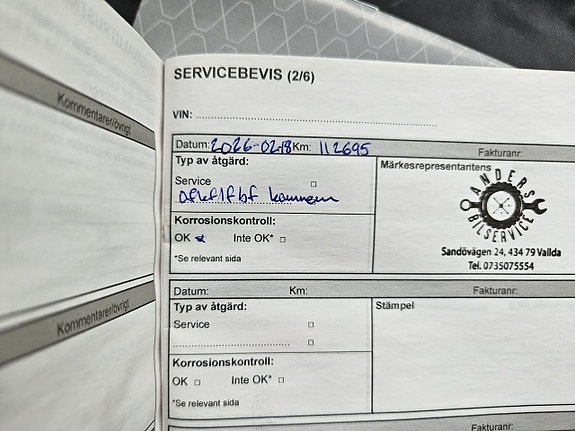 Kommentarer/övrigt
Kommentarer/övrigt
SERVICEBEVIS (2/6)
VIN:
Datum: 2026-0218 Km: 112695 Fakturanr:
Typ av åtgärd:
Märkesrepresentantens
Service
ANDERS
BILSERVICE
Korrosionskontroll:
OK Inte OK*
*Se relevant sida
Sandövägen 24, 434 79 Vallda
Tel. 0735075554
Datum: Km: Fakturanr:
Typ av åtgärd:
Stämpel
Service
Korrosionskontroll:
OK Inte OK*
*Se relevant sida
Fakturanr: